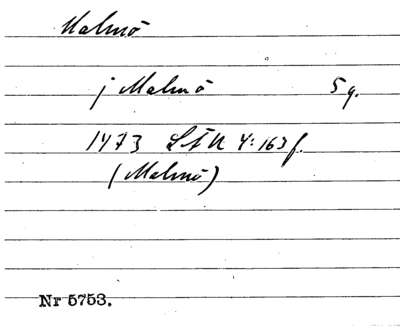 Malmö
j Malmö 5 g.
1473 LEU 4:163f.
(Malmö)
Nr 5753.